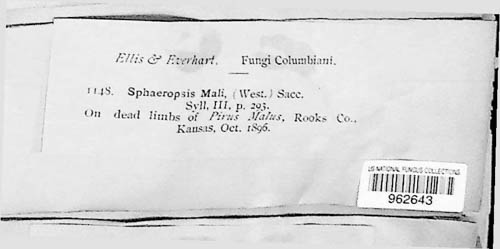 Ellis & Everhart. Fungi Columbiani.
1148. Sphaeropsis Mali, (West.) Sacc.
Syll, III, p. 293.
On dead limbs of Pirus Malus, Rooks Co.,
Kansas, Oct. 1896.
US NATIONAL FUNGUS COLLECTIONS
962643